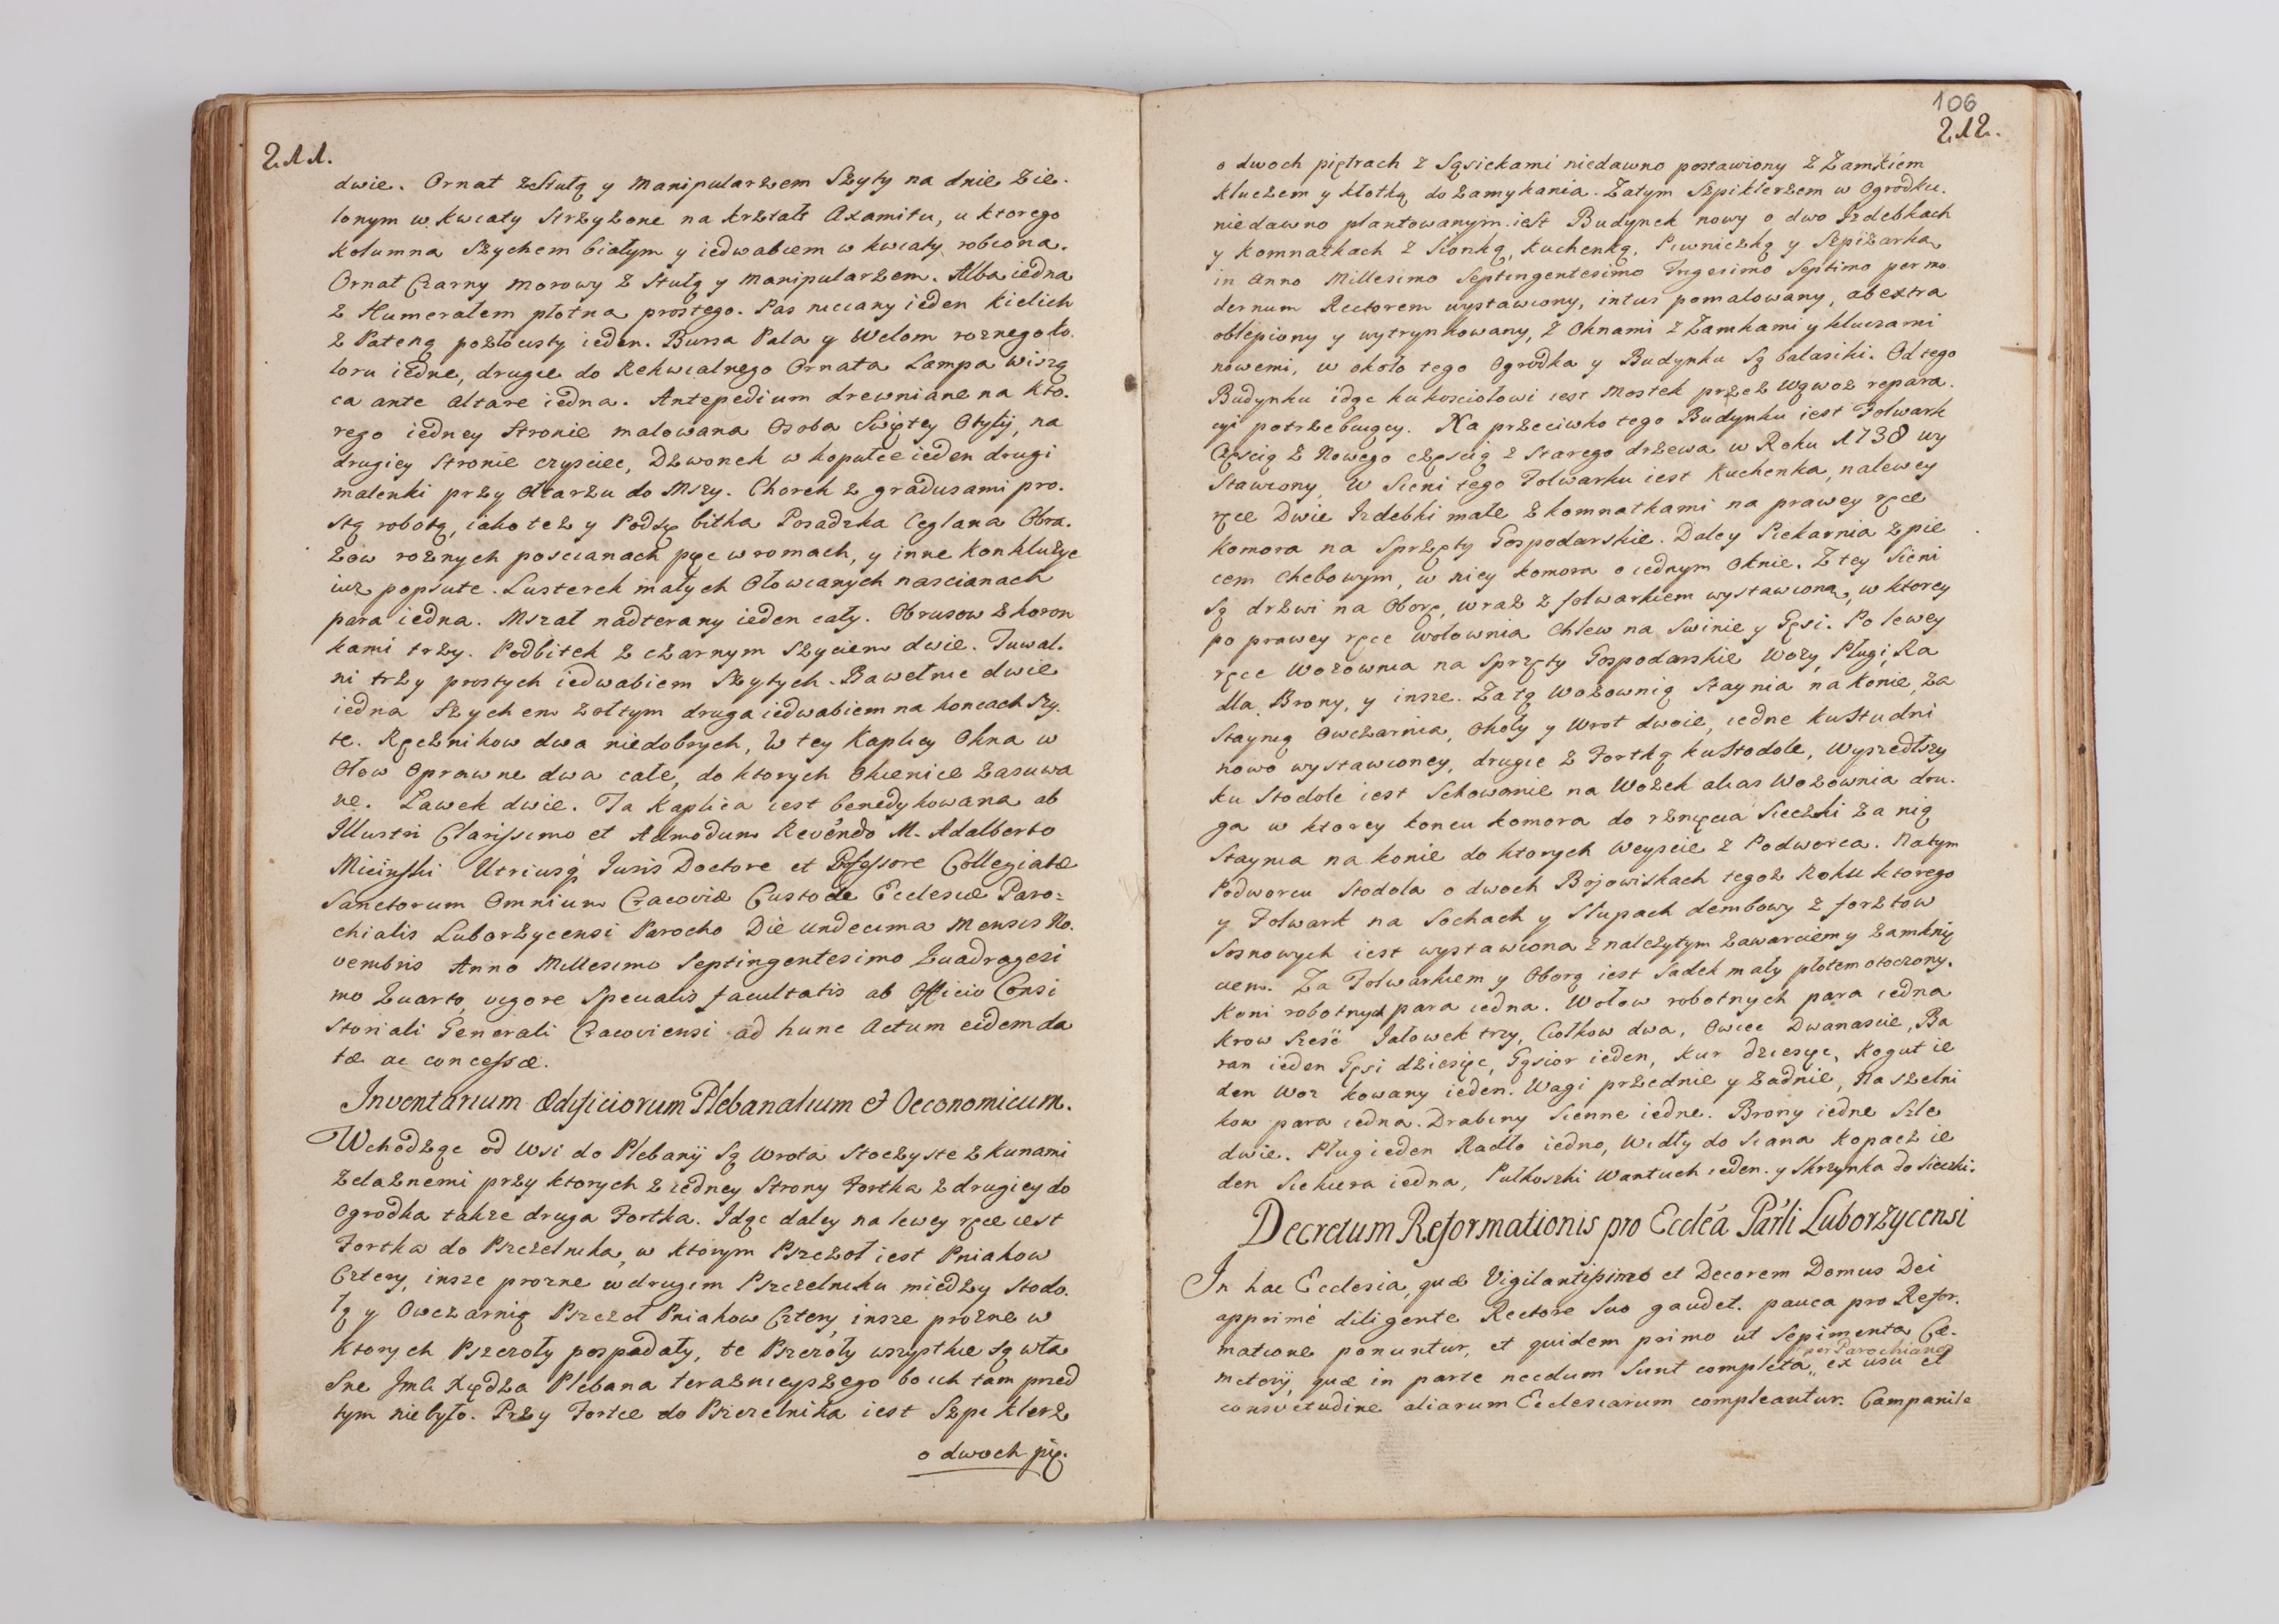 211.
dwie. Ornat zeStułą y Manipularzem Szyty na dnie Zie-
lonym w kwiaty Strzyżone na krztałt Axamitu, u ktorego
kolumna Szychem białym y iedwabiem w kwiaty robiona.
Ornat Czarny Morowy z Stułą y Manipularzem. Alba iedna
z Humerałem płotna prostego. Pas niciany ieden Kielich
z Pateną pozłocisty ieden. Bursa Pala y Welom roznego ko-
loru iedne, drugie do Rekwialnego Ornata Lampa Wiszą
ca ante Altare iedna. Antepedium drewniane na kto-
rego iedney Stronie malowana Osoba Swiętey Otylij, na
drugiey Stronie czysciec, Dzwonek w kopułce ieden drugi
malenki przy Ołtarzu do Mszy. Chorek z gradusami pro-
stą robotą, iako tez y Podsębitka Posadzka Ceglana Obra-
zow roznych poscianach pięc w romach, y inne konkluzye
iuz popsute. Lusterek małych Ołowianych nascianach
para iedna. Mszał nadterany ieden cały. Obrusow z koron
kami trzy. Podbitek z czarnym Szyciem dwie. Tuwal-
ni trzy prostych iedwabiem Szytych. Bawełnie dwie
iedna Szychem zołtym druga iedwabiem na koncach Szy-
te. Ręcznikow dwa niedobrych, W tey Kaplicy Okna w
Ołow Oprawne dwa całe, do ktorych Okienice zasuwa
ne. Ławek dwie. Ta Kaplica iest benedykowana ab
Illustri Clarissimo et Admodum Revendo M. Adalberto
Miciński Utriusq Iuris Doctore et Professore Collegiatæ
Sanctorum Omnium Cracoviæ Custode Ecclesiæ Paro-
chialis Luborzycensi Parocho Die undecima Mensis No-
vembris Anno Millesimo Septingentesimo Quadragesi
mo Quarto, vigore Specialis facultatis ab Officio Consi
storiali Generali Cracoviensi ad hunc Actum eidem da
tæ ac concessæ.
Inventarium Ædificiorum Plebanalium et Oeconomicum.
Wchodząc od Wsi do Plebanij Są Wrota Stoczyste z kunami
zelaznemi przy ktorych z iedney Strony Fortka z drugiey do
Ogrodka takze druga Fortka. Idąc daley na lewey ręce iest
Fortka do Pszczelnika, w ktorym Pszczoł iest Pniakow
Cztery, insze prozne w drugim Pszczelniku miedzy Stodo-
łą y Owczarnią Pszczoł Pniakow Cztery, insze prozne w
ktorych Pszczoły pospadały, te Pszczoły wszystkie są wła
sne Jmci Xiędza Plebana teraznieyszego bo ich tam przed
tym niebyło. Przy Fortce do Pszczelnika iest Szpiklerz
o dwoch pię-
106
212.
o dwoch piętrach z Sąsiekami niedawno postawiony z Zamkiem
kluczem y kłotką do zamykania. Zatym Szpiklerzem w Ogrodku
niedawno plantowanym iest Budynek nowy o dwo Izdebkach
y Komnatkach z Sionką, Kuchenką, Piwniczką y Szpizarką
in Anno Millesimo Septingentesimo Trigesimo Septimo per mo
dernum Rectorem wystawiony, intus pomalowany, ab extra
oblepiony y wytrynkowany, z Oknami z Zamkami y kluczami
nowemi, w około tego Ogrodka y Budynku są balasiki. Od tego
Budynku idąc kukosciołowi iest Mostek przez Wąwoz repara-
cyi potrzebuiący. Na przeciwko tego Budynku iest Folwark
Częscią z Nowego częscią z Starego drzewa w Roku 1738 wy
stawiony, W Sieni tego Folwarku iest Kuchenka, nalewey
ręce Dwie Izdebki małe z komnatkami na prawey ręce
Komora na Sprzęty Gospodarskie. Daley Piekarnia z pie
cem Chlebowym, w niey komora o iednym Oknie. Z tey Sieni
są drzwi na Oborę, wraz z folwarkiem wystawioną, w ktorey
po prawey ręce wołownia Chlew na Swinie y Gęsi. Po lewey
ręce Wozownia na Sprzęty Gospodarskie Wozy, Pługi, Ra
dła, Brony, y insze. Za tą Wozownią Staynia na Konie, za
Staynią Owczarnia, Okoły y Wrot dwoie, iedne kuStudni
nowo wystawioney, drugie z Fortką kuStodole, Wyszedłszy
ku Stodole iest Schowanie na Wozek alias Wozownia dru-
ga w ktorey koncu komora do rznięcia Sieczki za nią
Staynia na konie do ktorych Weyscie z Podworca. Natym
Podworcu Stodoła o dwoch Bojowiskach tegoz Roku ktorego
y Folwark na Sochach y Słupach dembowy z forsztow
Sosnowych iest wystawiona z należytym zawarciem y zamknię
ciem. Za Folwarkiem y Oborą iest Sadek mały płotem otoczony.
Koni robotnych para iedna. Wołow robotnych para iedna
Krow Szesć Jałowek trzy, Ciołkow dwa, Owiec Dwanascie, Ba
ran ieden Gęsi dziesięc, Gąsior ieden, Kur dziesięc, Kogut ie
den Woz kowany ieden. Wagi przednie y zadnie, Naszelni
kow para iedna. Drabiny Sienne iedne. Brony iedne Szle
dwie. Pług ieden Radło iedno, Widły do Siana Kopacz ie
den Siekiera iedna, Pułkoszki Wantuch ieden y Skrzynka do Sieczki.
Decretum Reformationis pro Ecclẽa Parłi Luborzycensi
In hac Ecclesia, quæ Vigilantissimo et Decorem Domus Dei
apprimé diligente Rectore Suo gaudet. pauca pro Refor-
matione ponuntur, et quidem primo ut Sepimenta Cæ-
meterij, quæ in parte necdum Sunt completa, per Parochianos ex usu et
consvetudine aliarum Ecclesiarum compleantur. Campanile